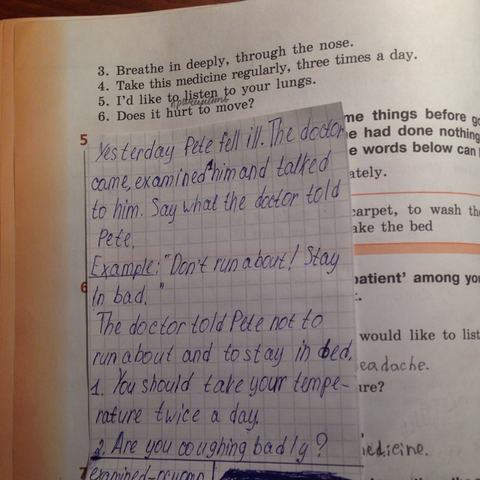 3. Breathe in deeply, through the nose.
4. Take this medicine regularly, three times a day.
5. I'd like to listen to your lungs.
6. Does it hurt to move?
5
Yesterday Pete fell ill. The doctor
came, examined him and talked
to him. Say what the doctor told
Pete.
Example: "Don't run about! Stay
In bad."
The doctor told Pete not to
run about and to stay in bed.
1. You should take your tempe-
rature twice a day.
2. Are you coughing badly?
examined-
me things before
e had done nothing
e words below can
ately.
carpet, to wash
ake the bed
6
patient' among
would like to
eadache.
ure?
edicine.
7